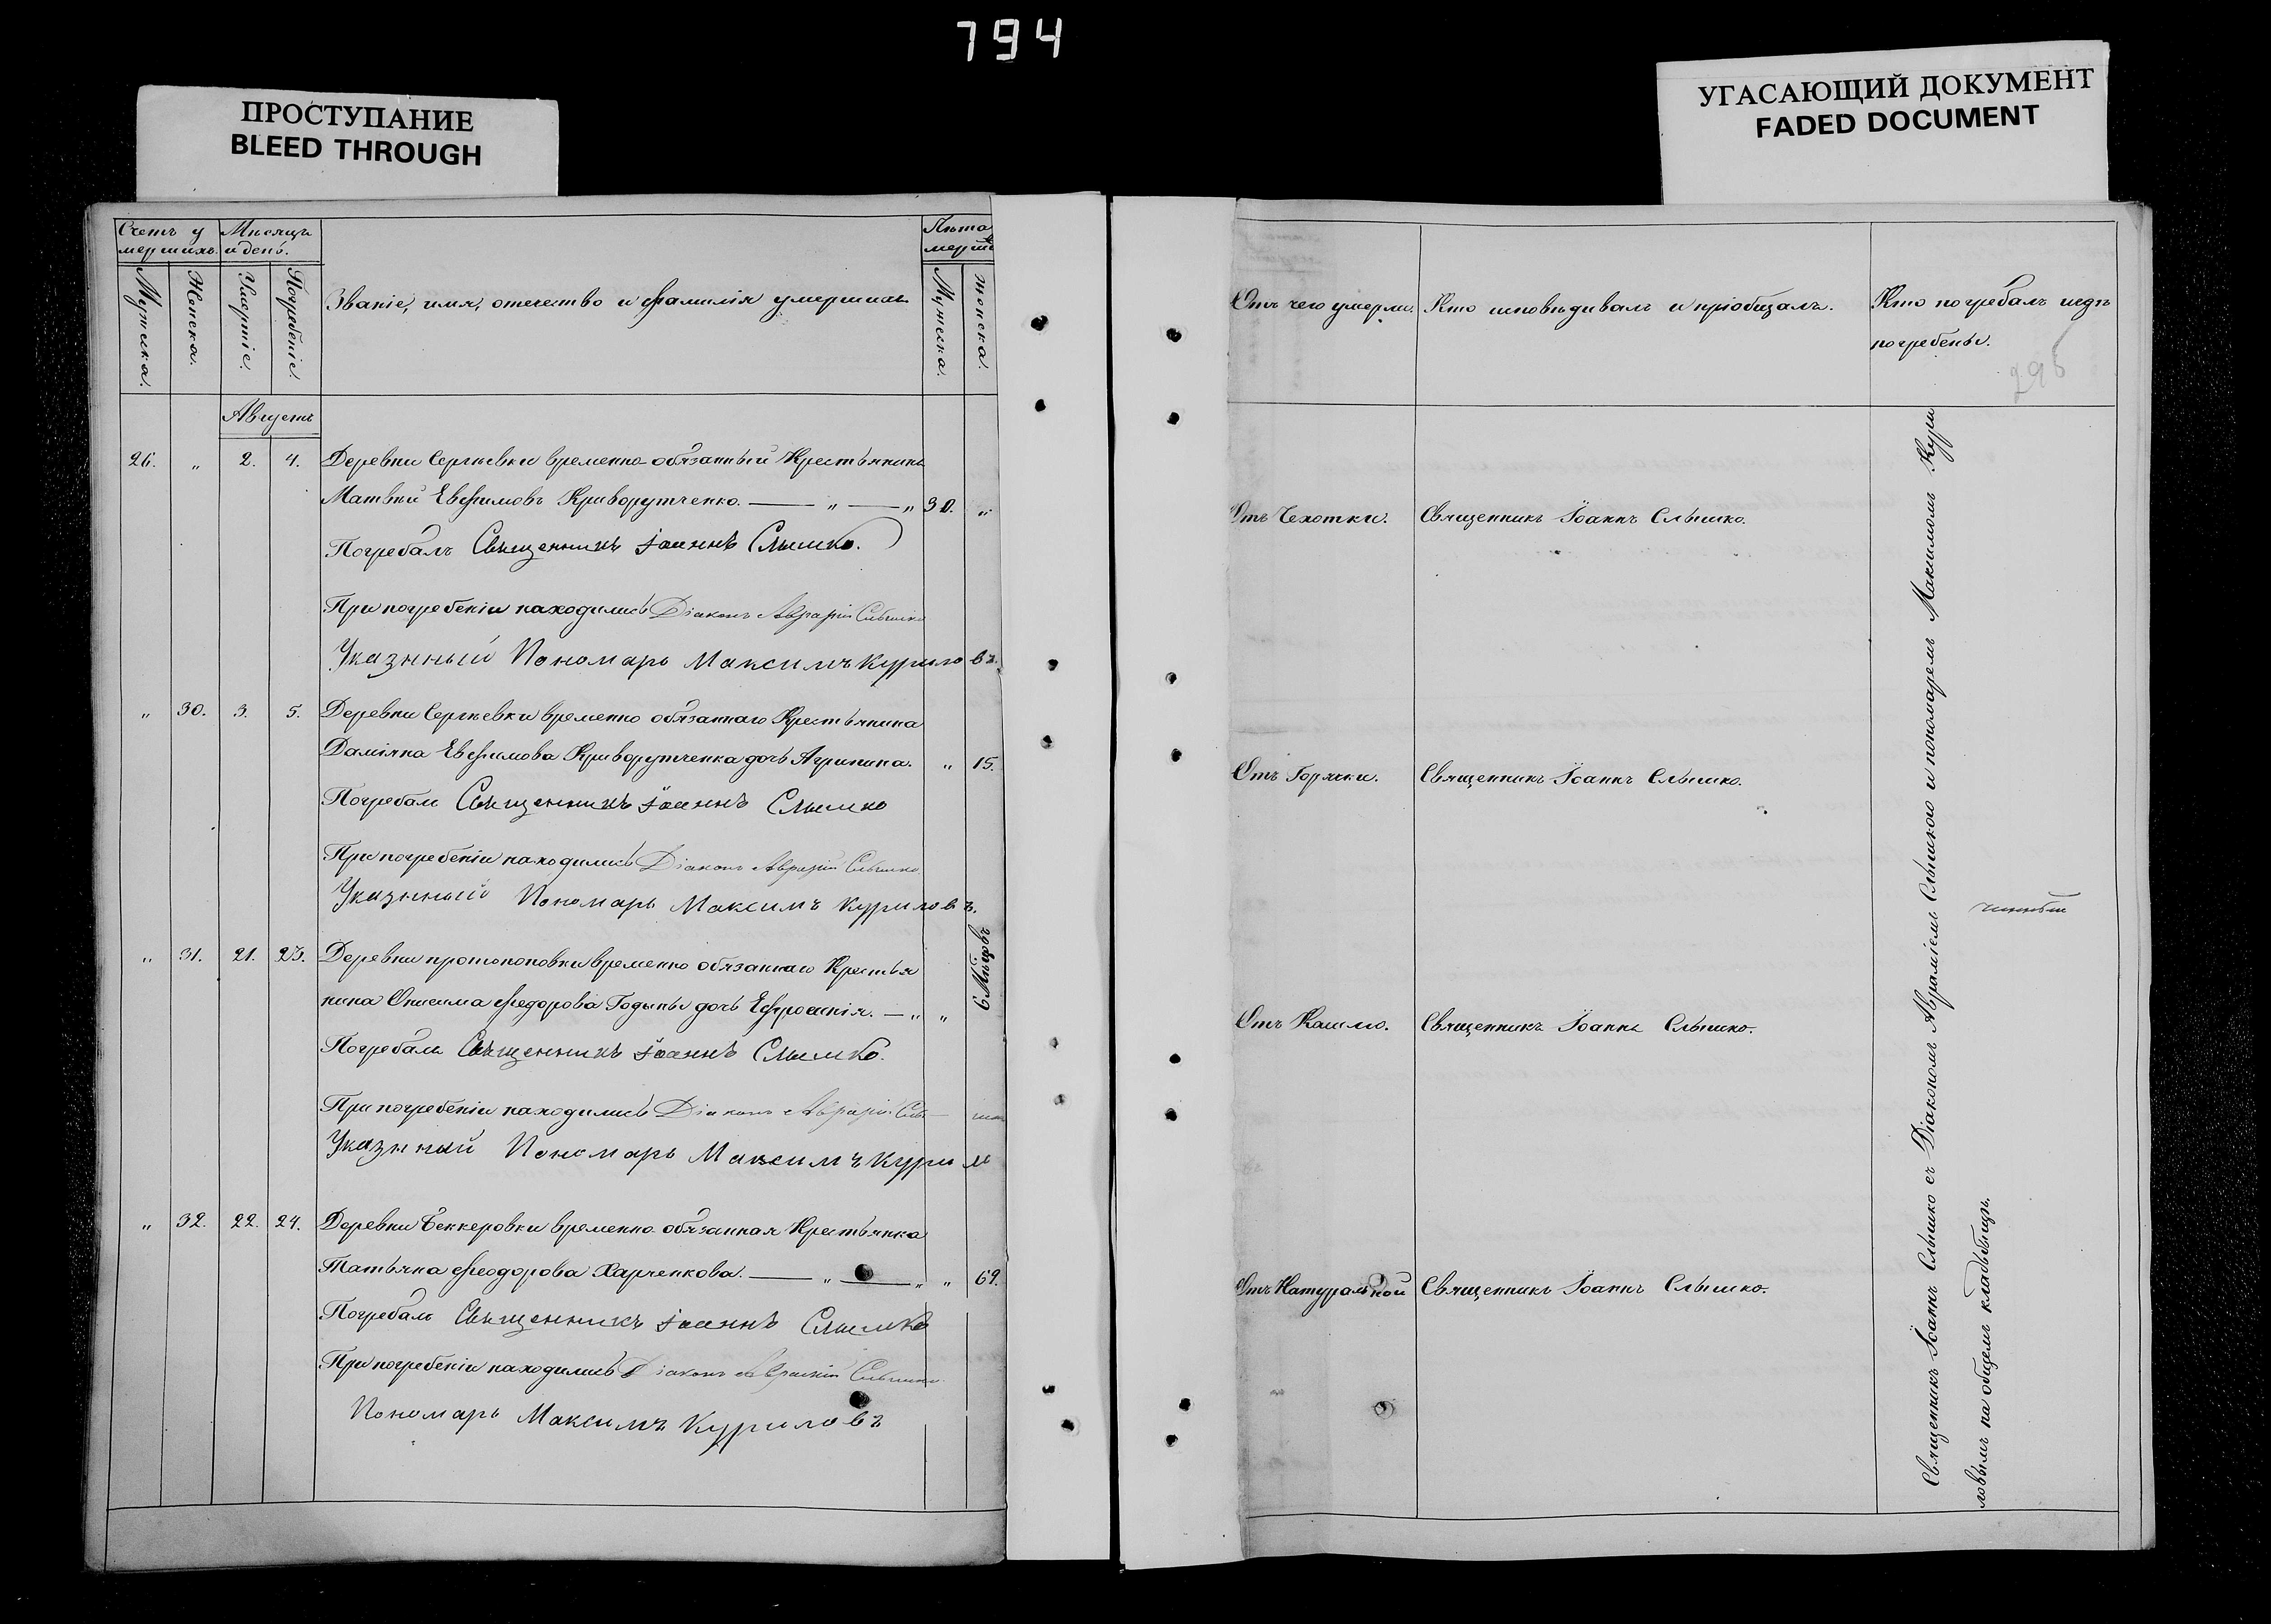 794
ПРОСТУПАНИЕ
BLEED THROUGH
УГАСАЮЩИЙ ДОКУМЕНТ
FADED DOCUMENT
Счетъ у
мершихъ.
Мужеска.
Женска.
Мѣсяцъ
и день.
Умертіе.
Погребеніе.
Званіе, имя, отечество и фамилія умершихъ
Лѣта
мерша
Мужеска.
женска.
Августъ
26. „ 2. 4. Деревни Сергѣевки временно-обязанный Крестьянинъ
Матвѣй Евфимовъ Криворутченко. — „ — „ 30. „
Погребалъ Священникъ Іоаннъ Слышко.
При погребеніи находились Діаконъ Аврамій Слышко
Указнный Пономарь Максимъ Куриловъ.
„ 30. 3. 5. Деревни Сергѣевки временно обязаннаго Крестьянина
Даміяна Евфимова Криворутченка дочь Агрипина. „ 15.
Погребалъ Священникъ Іоаннъ Слышко
При погребеніи находились Діаконъ Аврамій Слышко
Указнный Пономарь Максимъ Куриловъ.
„ 31. 21. 23. Деревни протопоповки временно обязаннаго Крестья
нина Онисима Федорова Годыны дочь Ефросинія. — „ „ 6 Мѣсцовъ
Погребалъ Священникъ Іоаннъ Слышко.
При погребеніи находились Діаконъ Аврамій Слы
Указнный Пономарь Максимъ Курил
„ 32. 22. 24. Деревни Беккеровки временно-обязанная Крестьянка
Татьяна Феодорова Харченкова. — „ — „ „ 69.
Погребалъ Священникъ Іоаннъ Слышко
При погребеніи находились Діаконъ Аврамій Слышко
Пономарь Максимъ Куриловъ
Отъ чего умерли.
Кто исповѣдивалъ и пріобщалъ.
Кто погребалъ и гдѣ
погребены.
295
Отъ Чехотки. Священникъ Іоаннъ Слышко.
Отъ Горячки. Священникъ Іоаннъ Слышко.
Отъ Кашлю. Священникъ Іоаннъ Слышко.
Отъ Натуральной Священникъ Іоаннъ Слышко.
Священникъ Іоаннъ Слышко съ Діакономъ Авраміемъ Слышкою и пономаремъ Максимомъ Кури
ловымъ на общемъ кладбищѣ.